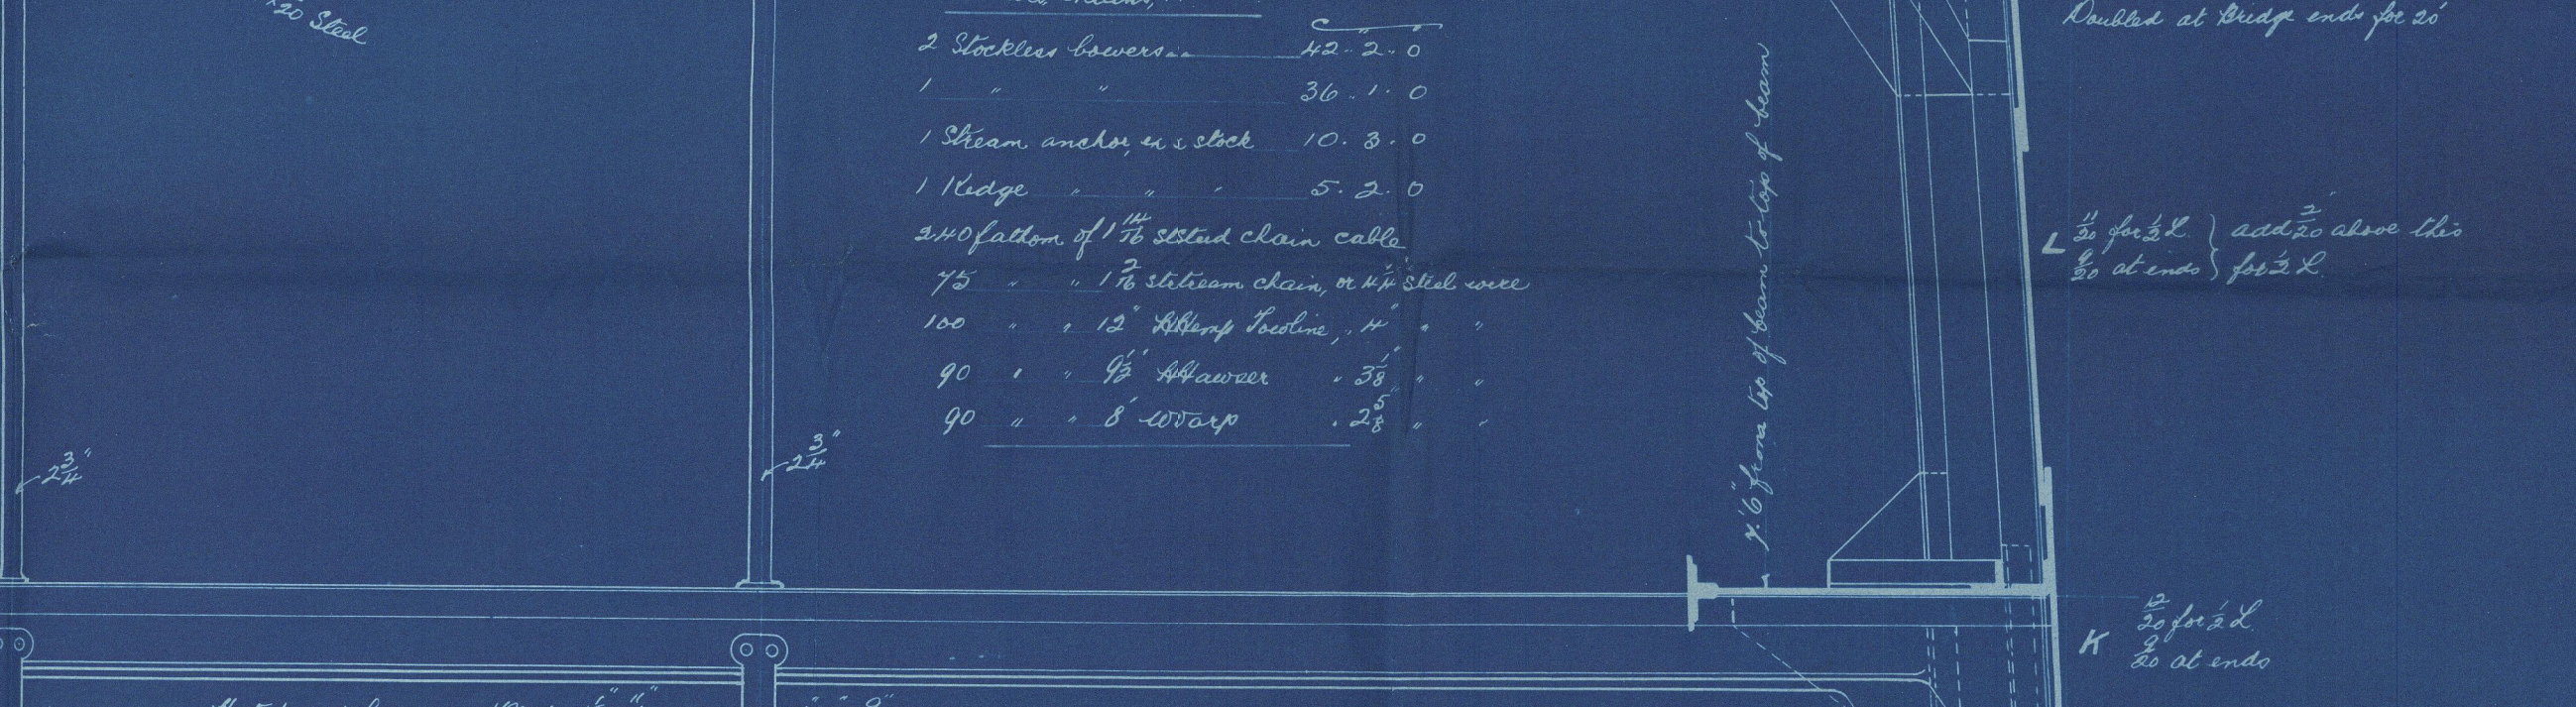 20 Steel
2 Stockless bowers 42 . 2 . 0
1 " " 36 . 1 . 0
1 Stream anchor, ex stock 10 . 3 . 0
1 Kedge " " " 5 . 2 . 0
240 fathom of 1 14/16 stud chain cable
75 " " 1 2/16 stream chain, or 4 1/4 steel wire
100 " " 12" Hemp Towline, " 4" " "
90 " " 9 1/2" Hawser " 3 1/8" " "
90 " " 8" Warp " 2 5/8" " "
2 3/4"
2 3/4"
7'.6" from top of beam to top of beam
Doubled at Bridge ends for 20'
L 11/20 for 1/2 L. } add 2/20 above this
9/20 at ends } for 1/2 L.
K 12/20 for 1/2 L.
9/20 at ends